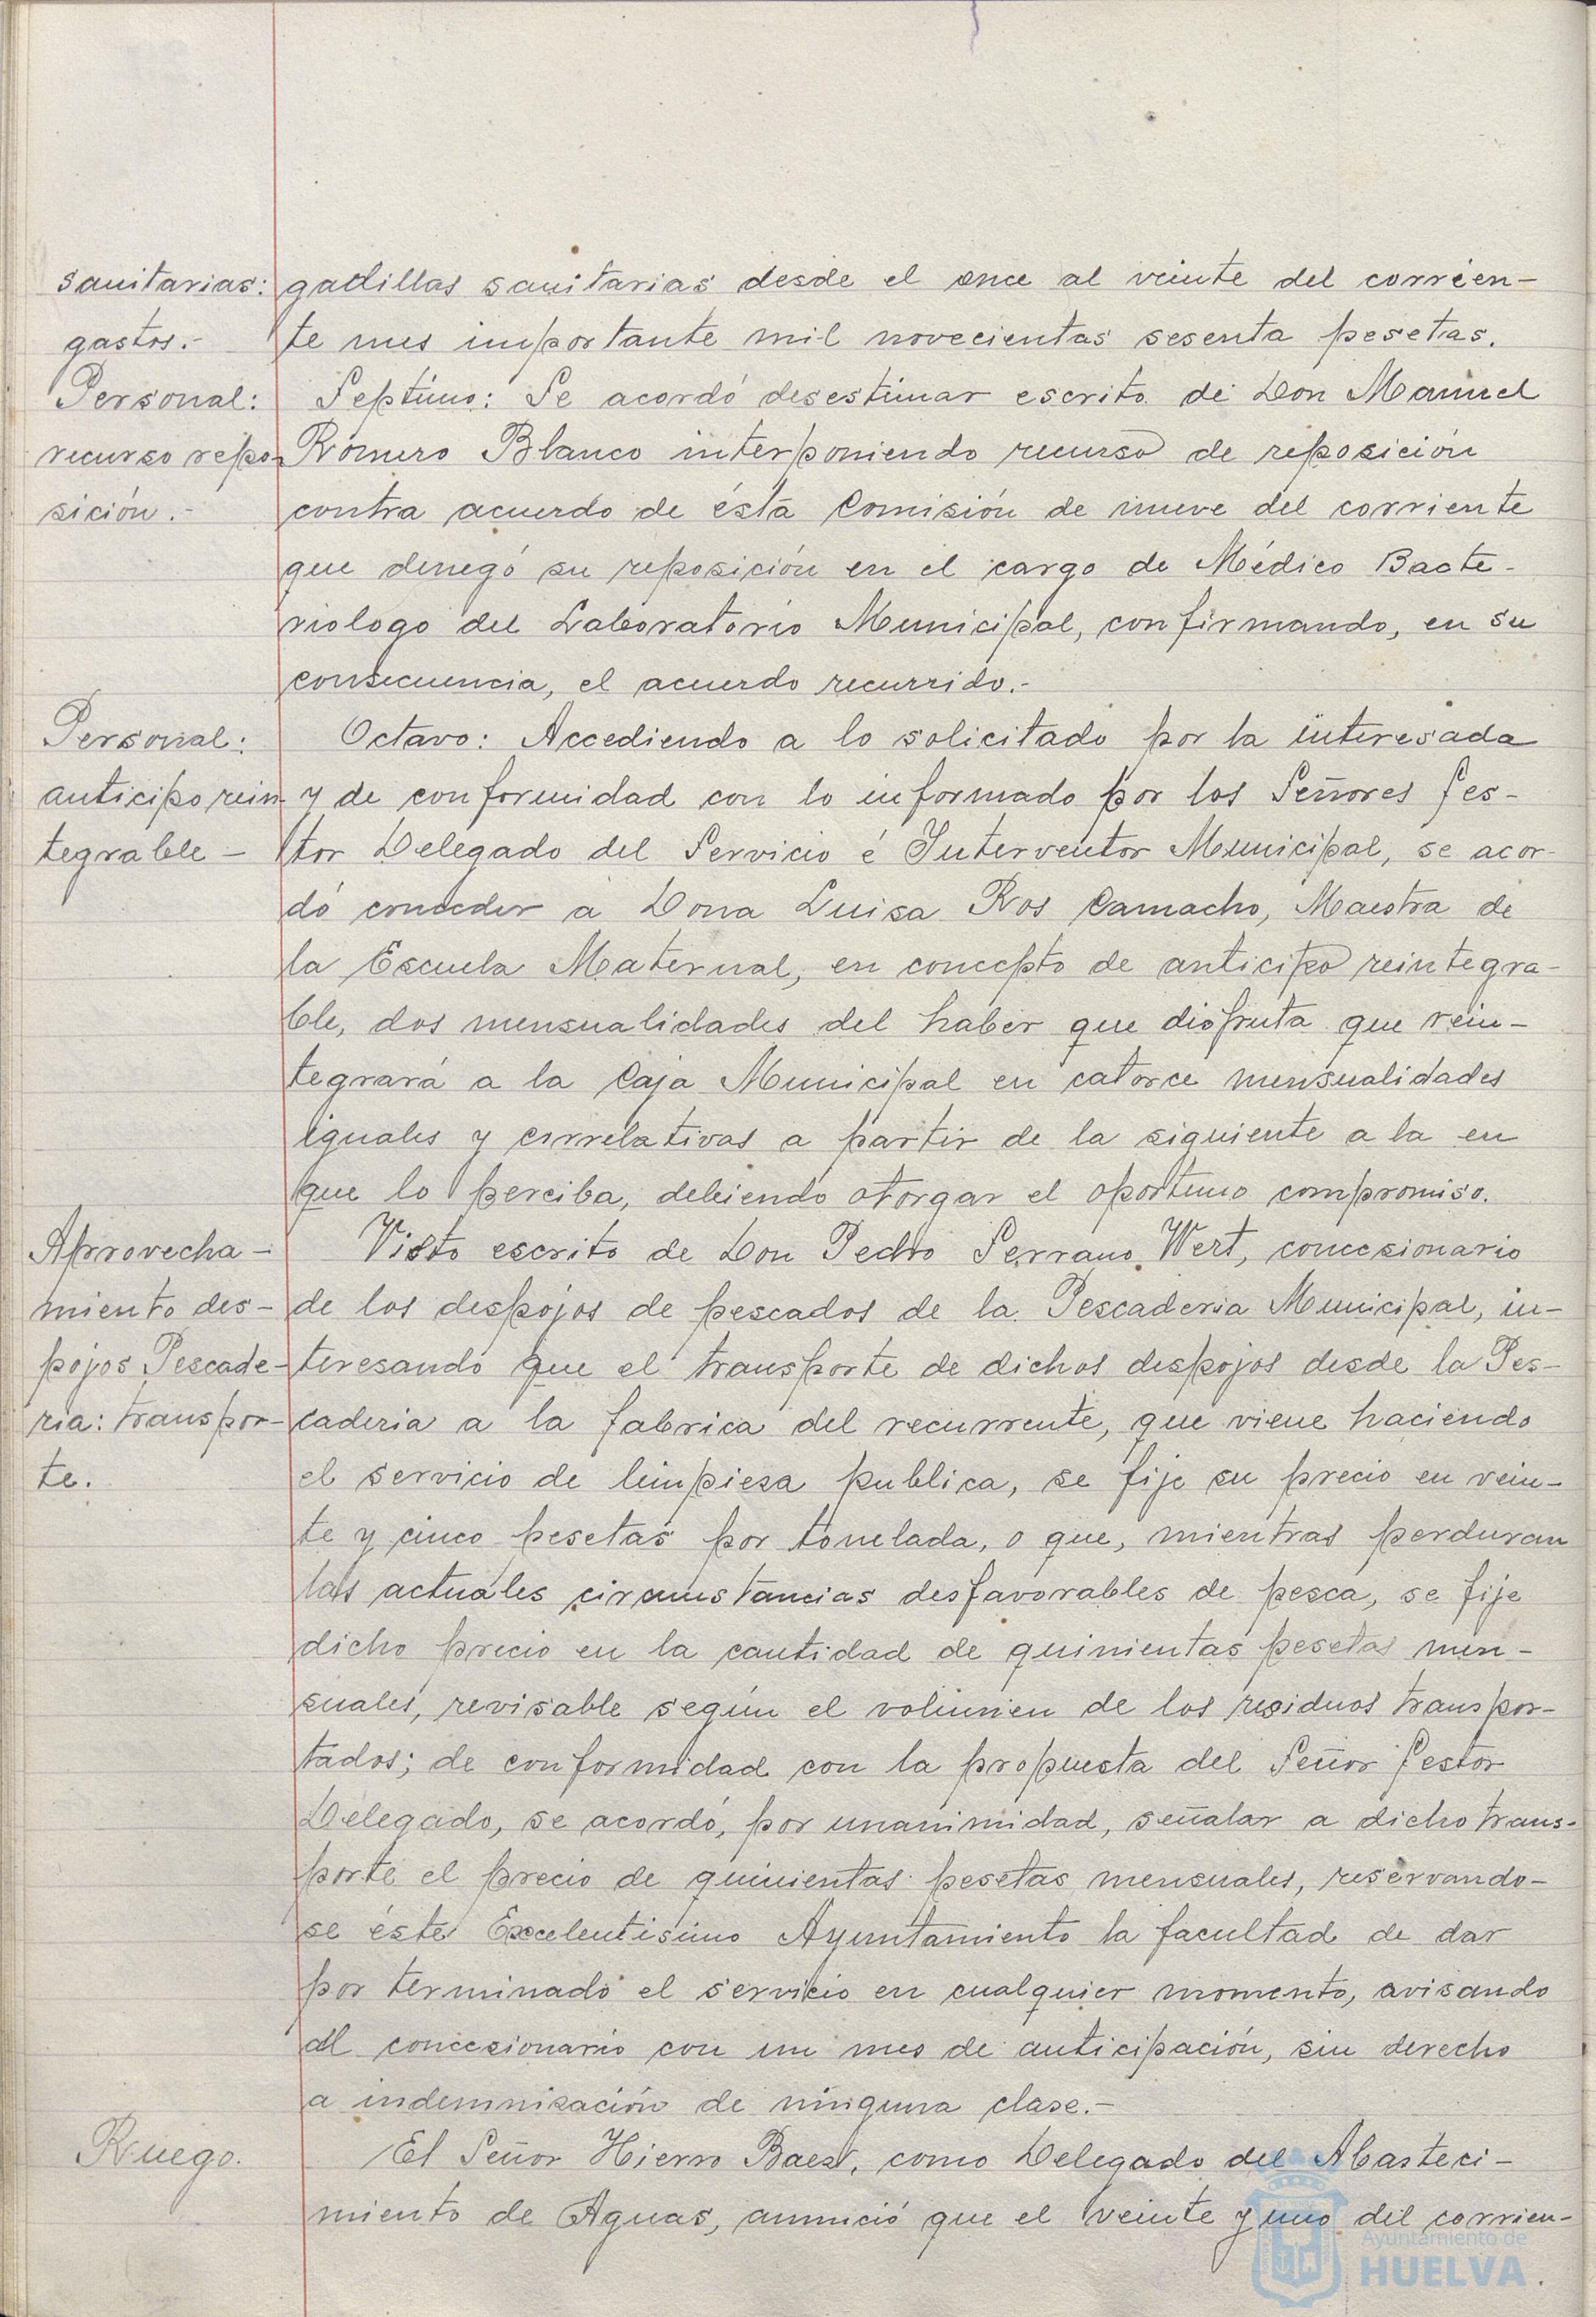 sanitarias:
gastos.-
gadillas sanitarias desde el once al veinte del corrien-
te mes importante mil novecientas sesenta pesetas.
Personal:
recurso repo-
sición.-
Septimo: Se acordó desestimar escrito de Don Manuel
Romero Blanco interponiendo recurso de reposición
contra acuerdo de ésta Comisión de nueve del corriente
que denegó su reposición en el cargo de Médico Bacte-
riologo del Laboratorio Municipal, confirmando, en su
consecuencia, el acuerdo recurrido.-
Personal:
anticipo rein-
tegrable-
Octavo: Accediendo a lo solicitado por la interesada
y de conformidad con lo informado por los Señores Ges-
tor Delegado del Servicio é Interventor Municipal, se acor-
dó conceder a Dona Luisa Ros Camacho, Maestra de
la Escuela Maternal, en concepto de anticipo reintegra-
ble, dos mensualidades del haber que disfruta que rein-
tegrará a la Caja Municipal en catorce mensualidades
iguales y correlativas a partir de la siguiente a la en
que lo perciba, debiendo otorgar el oportuno compromiso.
Aprovecha-
miento des-
pojos Pescade-
ria: transpor-
te.
Visto escrito de Don Pedro Serrano Wert, concesionario
de los despojos de pescados de la Pescaderia Municipal, in-
teresando que el transporte de dichos despojos desde la Pes-
caderia a la fabrica del recurrente, que viene haciendo
el servicio de limpieza publica, se fije su precio en vein-
te y cinco pesetas por tonelada, o que, mientras perduran
las actuales circunstancias desfavorables de pesca, se fije
dicho precio en la cantidad de quinientas pesetas men-
suales, revisable según el volumen de los residuos transpor-
tados; de conformidad con la propuesta del Señor Gestor
Delegado, se acordó, por unanimidad, señalar a dicho trans-
porte el precio de quinientas pesetas mensuales, reservando-
se éste Excelentisimo Ayuntamiento la facultad de dar
por terminado el servicio en cualquier momento, avisando
al concesionario con un mes de anticipación, sin derecho
a indemnización de ninguna clase.-
Ruego.
El Señor Hierro Baez, como Delegado del Abasteci-
miento de Aguas, anunció que el veinte y uno del corrien-
Ayuntamiento de
HUELVA